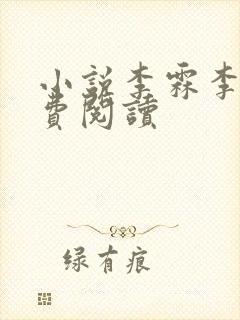 小説李霖李
費閱讀
绿有痕